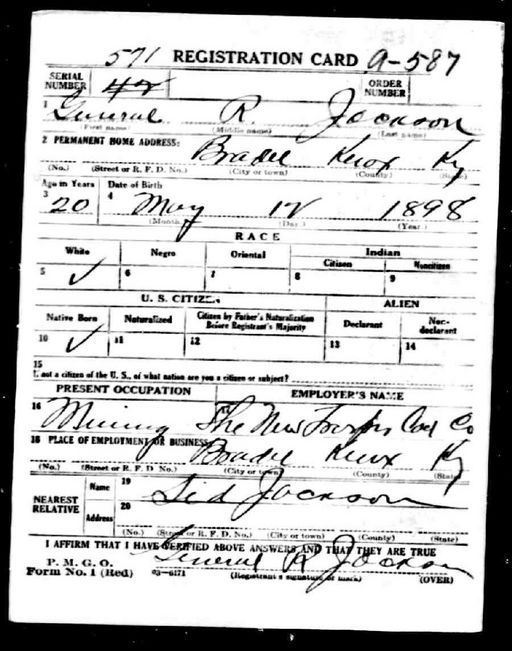 571 REGISTRATION CARD A-587
SERIAL NUMBER 42 ORDER NUMBER
1 General R. Jackson
(First name) (Middle name) (Last name)
2 PERMANENT HOME ADDRESS: Knox Ky
(No.) (Street or R. F. D. No.) (City or town) (County) (State)
Age in Years Date of Birth
3 20 4 May 12 1898
(Month) (Day.) (Year.)
RACE
White Negro Oriental Indian
Citizen Noncitizen
5 ✓ 6 7 8 9
U. S. CITIZEN ALIEN
Native Born Naturalized Citizen by Father's Naturalization Before Registrant's Majority Declarant Non-declarant
10 ✓ 11 12 13 14
15
If not a citizen of the U. S., of what nation are you a citizen or subject?
PRESENT OCCUPATION EMPLOYER'S NAME
16 Mining The New Coal Co
18 PLACE OF EMPLOYMENT OR BUSINESS: Knox Ky
(No.) (Street or R. F. D. No.) (City or town) (County) (State)
NEAREST RELATIVE Name 19 Sid Jackson
Address 20
(No.) (Street or R. F. D. No.) (City or town) (County) (State)
I AFFIRM THAT I HAVE VERIFIED ABOVE ANSWERS AND THAT THEY ARE TRUE
P. M. G. O.
Form No. 1 (Red) 03-6171 General R Jackson
(Registrant's signature or mark) (OVER)